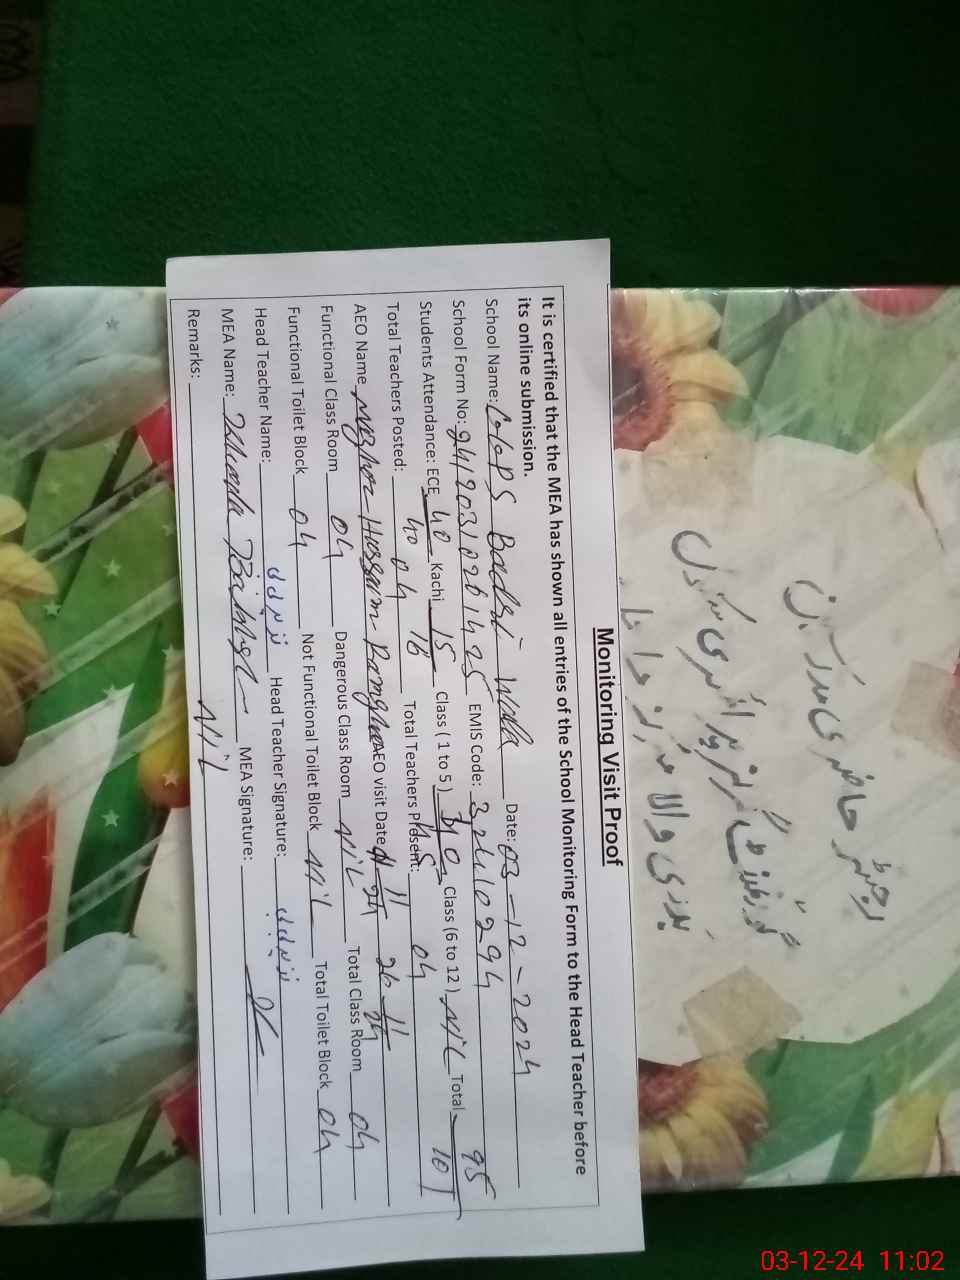 Monitoring Visit Proof
It is certified that the MEA has shown all entries of the School Monitoring Form to the Head Teacher before
its online submission.
School Name: GGPS Badri Wala Date: 03-12-2024
School Form No: 24120310261425 EMIS Code: 32410294
Students Attendance: ECE 40 Kachi 15 Class ( 1 to 5 ) 40 Class (6 to 12 ) NIL Total 95
40 18 45 101
Total Teachers Posted: 04 Total Teachers Present: 04
AEO Name Hussain AEO visit Date 11 24 26-11 24
Functional Class Room 04 Dangerous Class Room NIL Total Class Room 04
Functional Toilet Block 04 Not Functional Toilet Block NIL Total Toilet Block 04
Head Teacher Name: Head Teacher Signature:
MEA Name: MEA Signature:
Remarks: NIL
رجسٹر حاضری مدرسین
گورنمنٹ گرلز پرائمری سکول
بدری والا
03-12-24 11:02